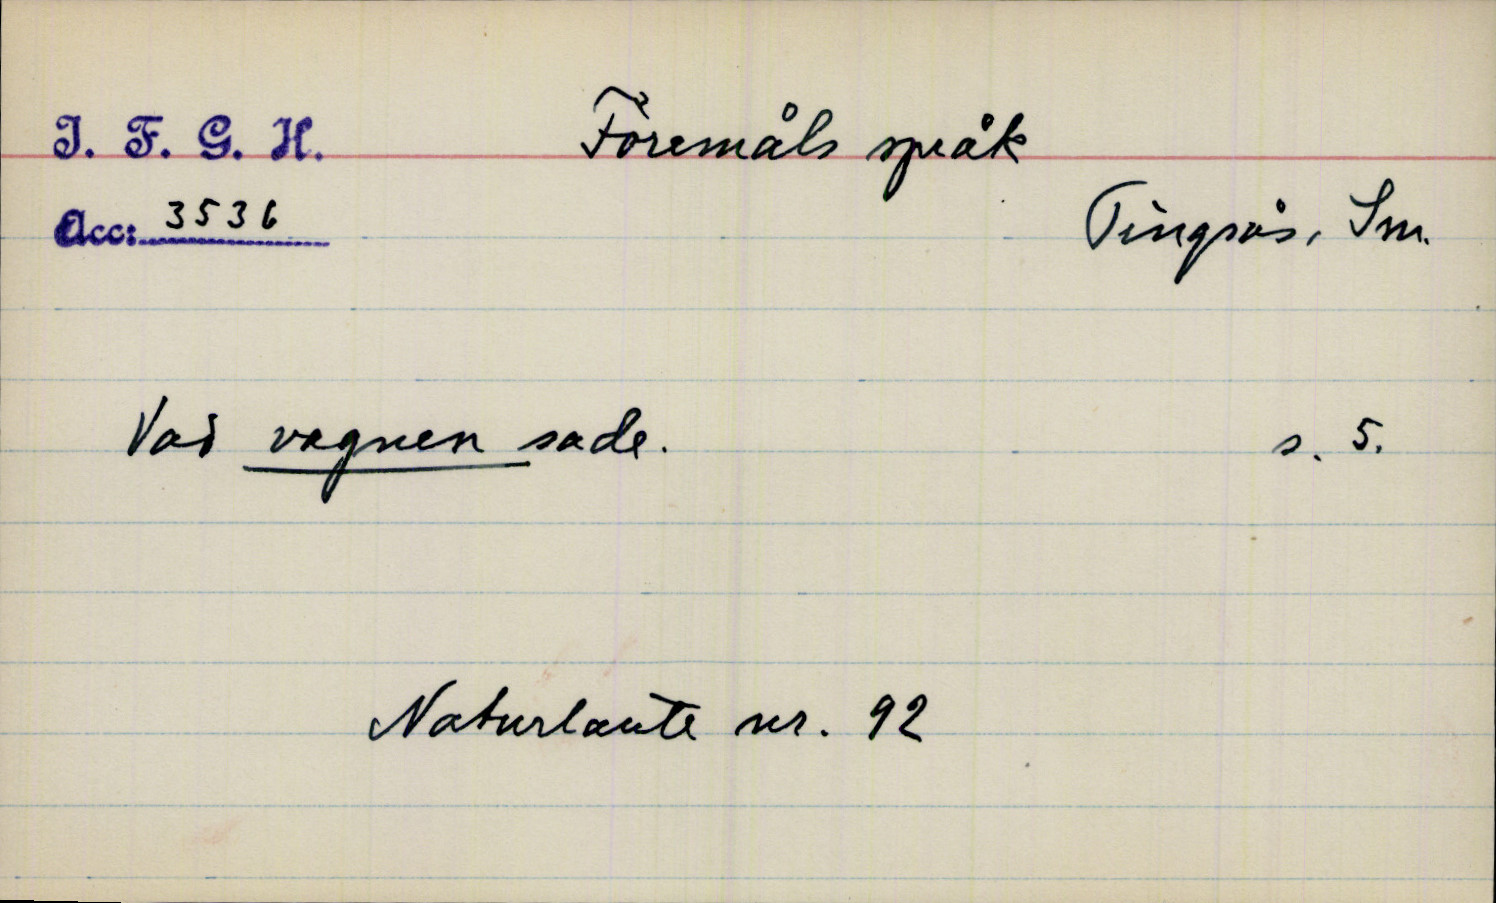 I. F. G. H.
Föremåls språk
Acc: 3536
Tingsås, Sm.
Vad vagnen sade. s. 5.
Naturlaute nr. 92